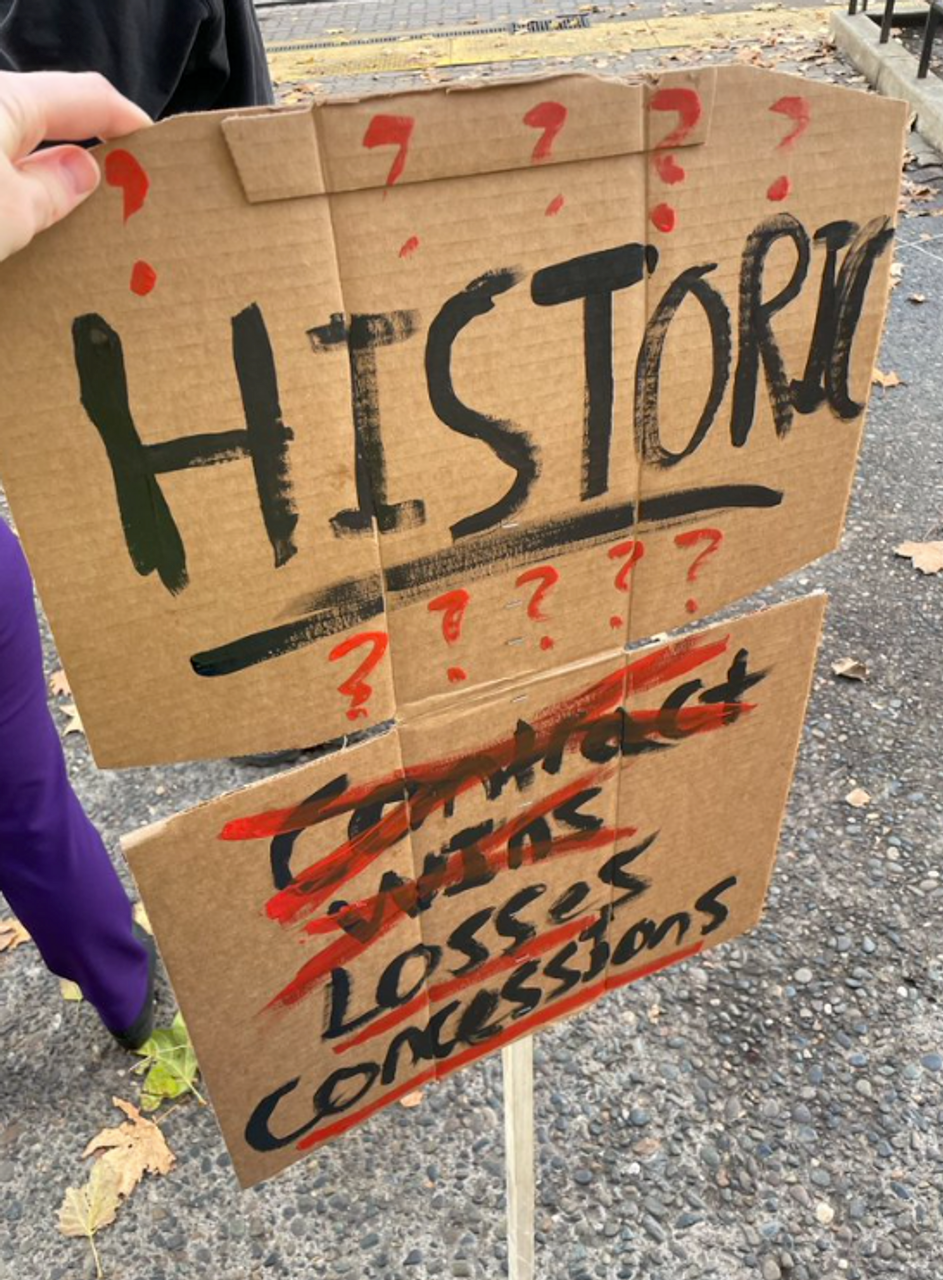 ? ? ? ? ?
HISTORIC
? ? ? ? ?
Contract
WIns
Losses
Concessions